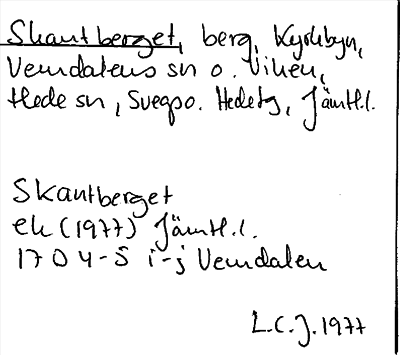 Skantberget, berg, Kyrkbyn,
Vemdalens sn o. Viken,
Hede sn, Svegso. Hedetg, Jämtl.l.
Skantberget
ek (1977) Jämtl.l.
1704-5 i-j Vemdalen
L.C.J. 1977